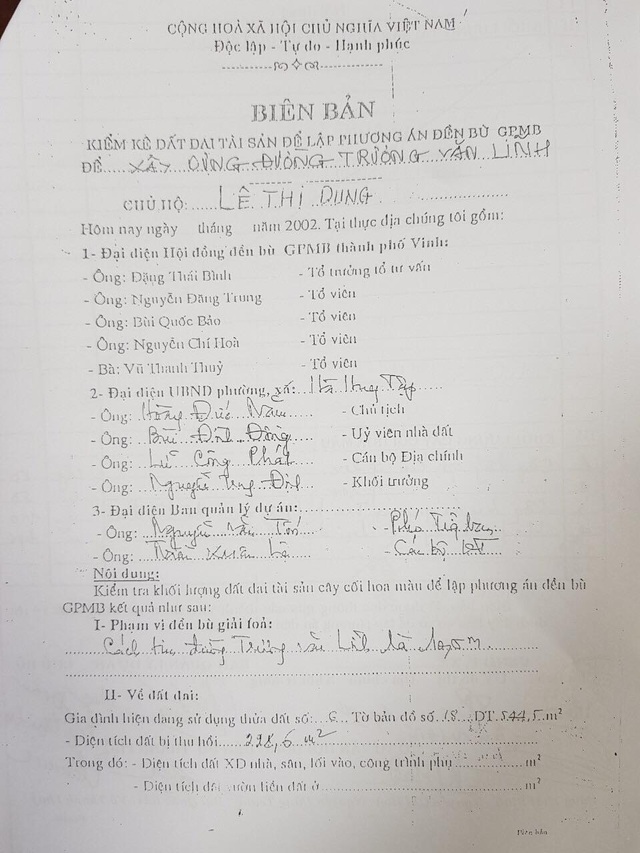 CỘNG HOÀ XÃ HỘI CHỦ NGHĨA VIỆT NAM
Độc lập - Tự do - Hạnh phúc
BIÊN BẢN
KIỂM KÊ ĐẤT ĐAI TÀI SẢN ĐỂ LẬP PHƯƠNG ÁN ĐỀN BÙ GPMB
ĐỂ XÂY DỰNG ĐƯỜNG TRƯƠNG VĂN LĨNH
CHỦ HỘ: LÊ THỊ DUNG
Hôm nay ngày tháng năm 2002. Tại thực địa chúng tôi gồm:
1- Đại diện Hội đồng đền bù GPMB thành phố Vinh:
- Ông: Đặng Thái Bình - Tổ trưởng tổ tư vấn
- Ông: Nguyễn Đăng Trung - Tổ viên
- Ông: Bùi Quốc Bảo - Tổ viên
- Ông: Nguyễn Chí Hoà - Tổ viên
- Bà: Vũ Thanh Thuỷ - Tổ viên
2- Đại diện UBND phường, xã: Hà Huy Tập
- Ông: Hoàng Đức - Chủ tịch
- Ông: Bùi Đình Đông - Uỷ viên nhà đất
- Ông: Công Phát - Cán bộ Địa chính
- Ông: Nguyễn - Khối trưởng
3- Đại diện Ban quản lý dự án:
- Ông: Nguyễn Văn - Phó
- Ông: Trần Xuân - Cán bộ
Nội dung:
Kiểm tra khối lượng đất đai tài sản cây cối hoa màu để lập phương án đền bù
GPMB kết quả như sau:
I- Phạm vi đền bù giải toả:
Cách tim đường Trương Văn Lĩnh là m
II- Về đất đai:
Gia đình hiện đang sử dụng thửa đất số: 6 Tờ bản đồ số 18 DT 544,5 m²
- Diện tích đất bị thu hồi 228,6 m²
Trong đó: - Diện tích đất XD nhà, sân, lối vào, công trình phụ m²
- Diện tích đất vườn liền đất ở m²
Biên bản